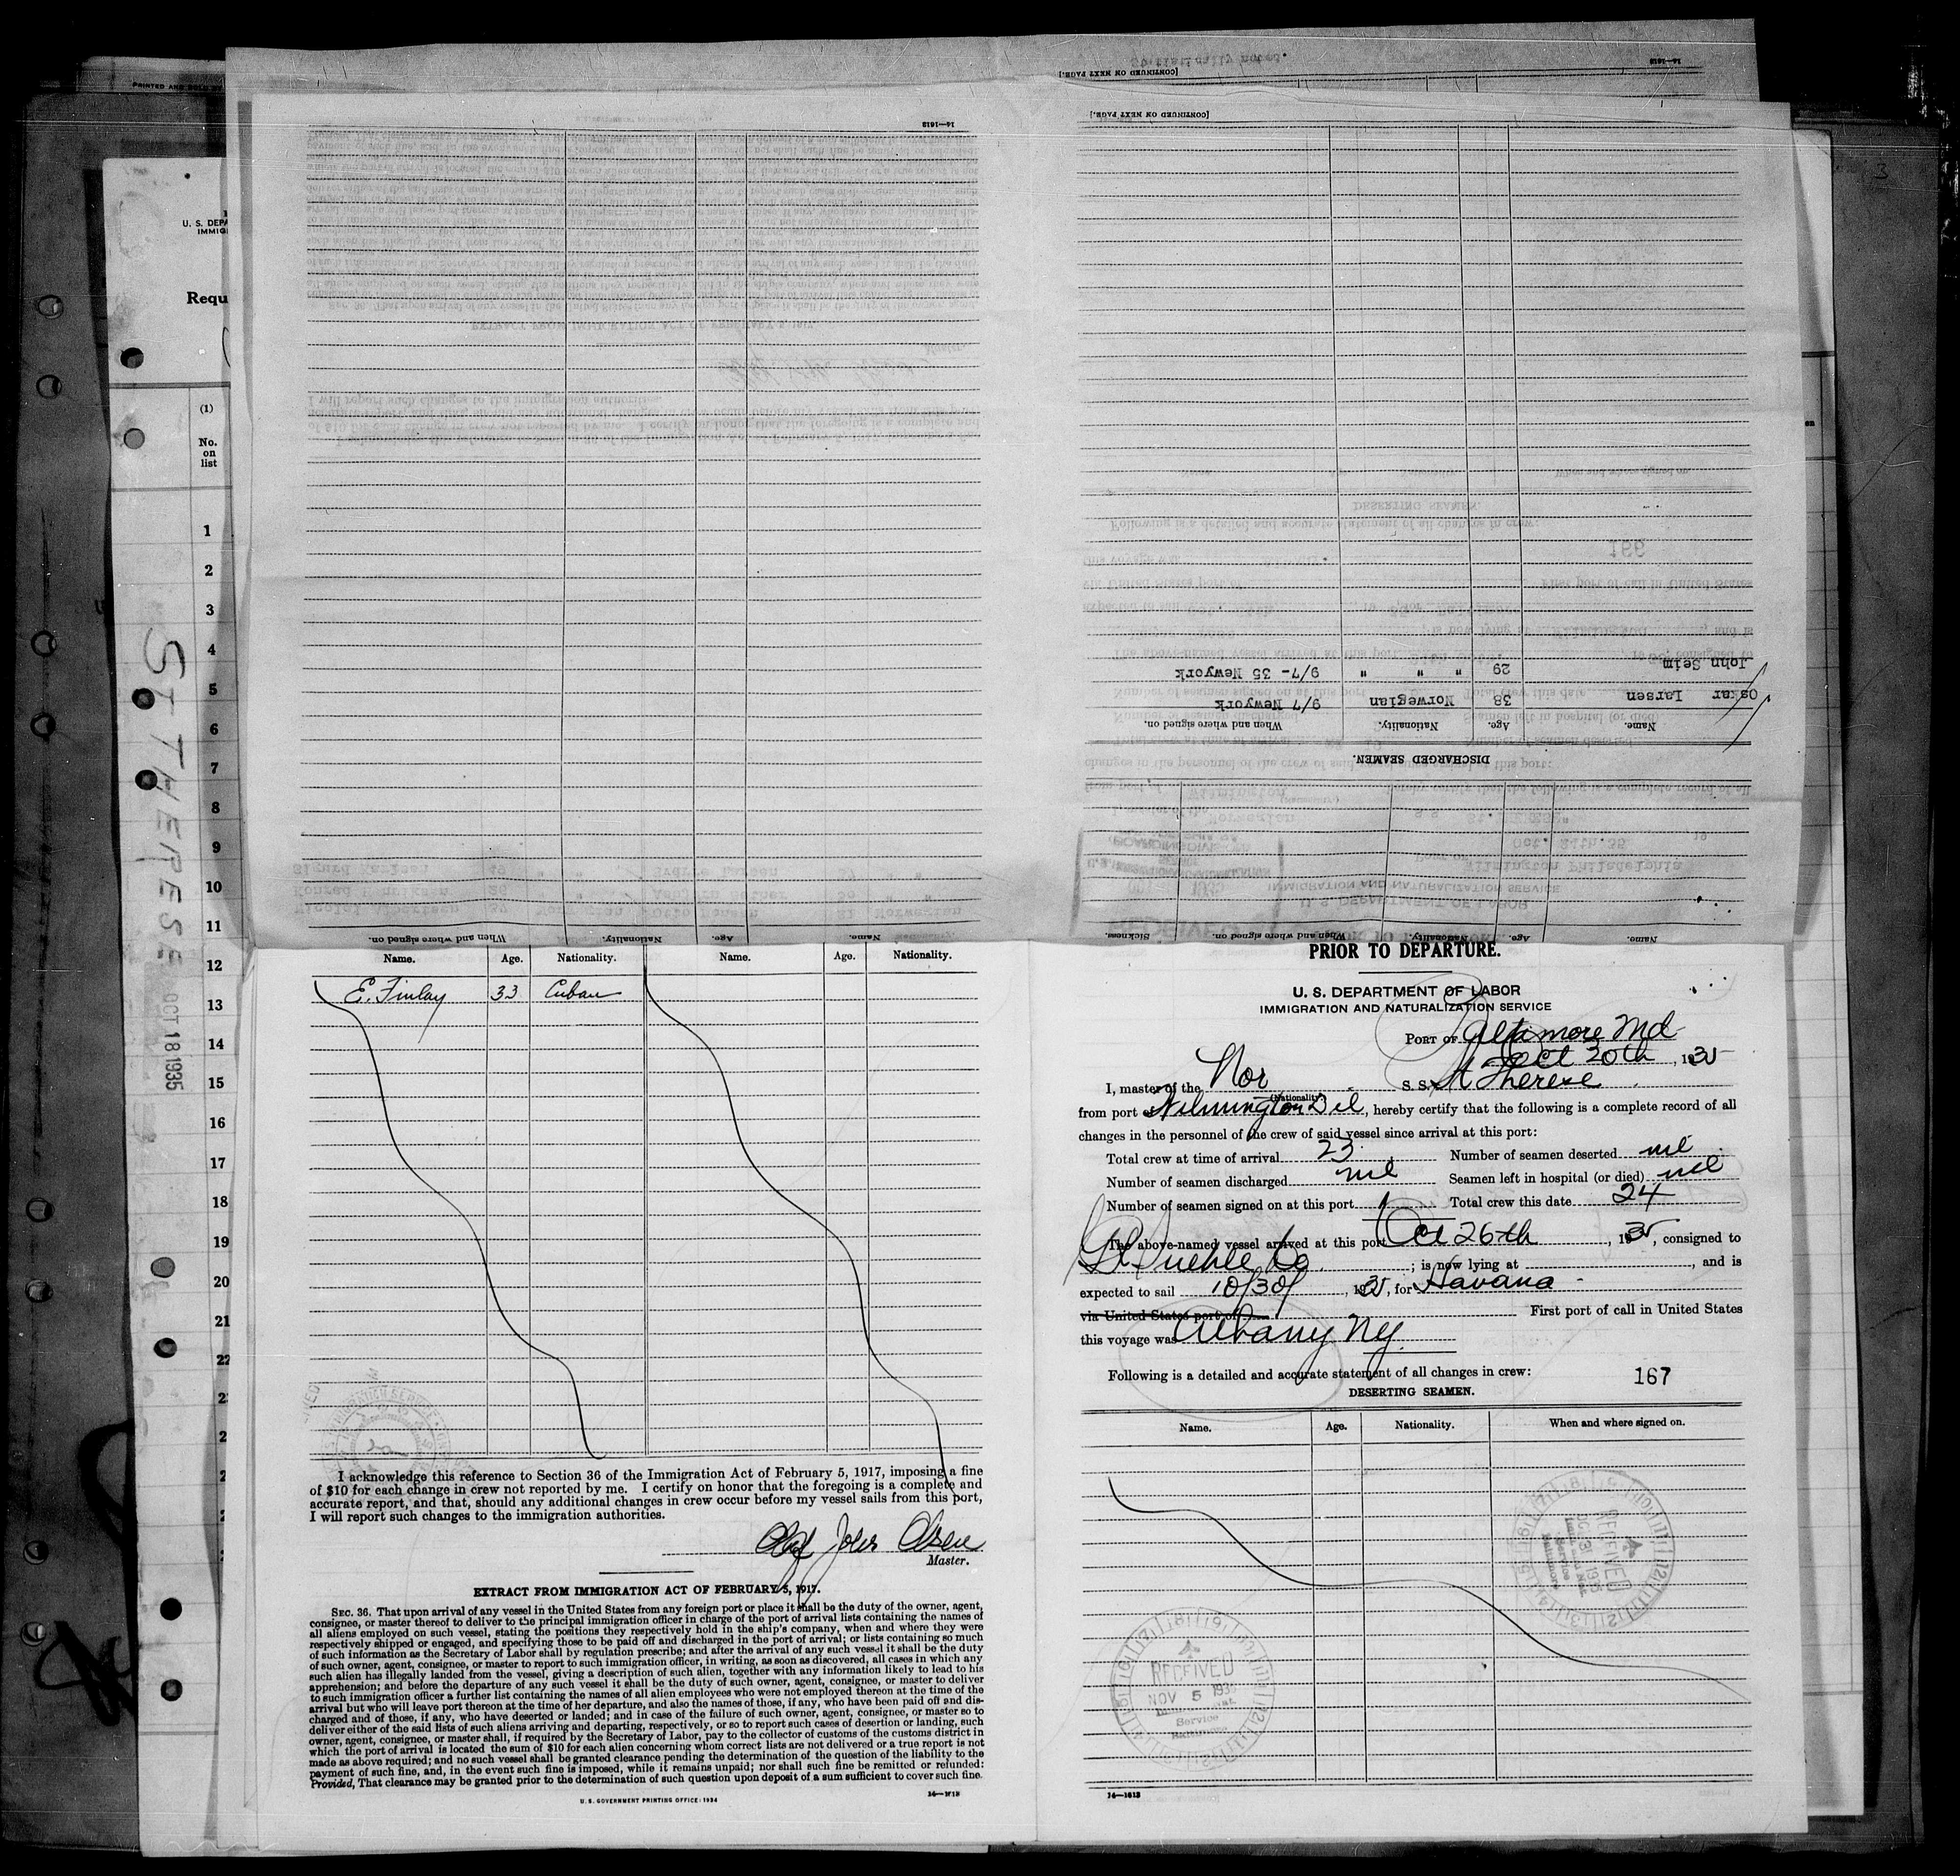 U. S. DEPA
IMMIG
Requ
(1)
No.
on
list
1
2
3
4
5
6
7
8
9
10
11
12
13
14
15
16
17
18
19
20
21
22
ST THERESE OCT 18 1935
14—1613
[CONTINUED ON NEXT PAGE.]
DISCHARGED SEAMEN.
Name. Age. Nationality. When and where signed on.
Oskar Larsen 38 Norwegian 9/7 Newyork
John Seim 29 " " " 9/7- 35 Newyork
Name. Age. Nationality. When and where signed on. Sickness.
Name. Age. Nationality. When and where signed on.
Name. Age. Nationality. Name. Age. Nationality.
E. Finlay 33 Cuban
I acknowledge this reference to Section 36 of the Immigration Act of February 5, 1917, imposing a fine
of $10 for each change in crew not reported by me. I certify on honor that the foregoing is a complete and
accurate report, and that, should any additional changes in crew occur before my vessel sails from this port,
I will report such changes to the immigration authorities.
Olaf John Olsen
Master.
EXTRACT FROM IMMIGRATION ACT OF FEBRUARY 5, 1917.
SEC. 36. That upon arrival of any vessel in the United States from any foreign port or place it shall be the duty of the owner, agent,
consignee, or master thereof to deliver to the principal immigration officer in charge of the port of arrival lists containing the names of
all aliens employed on such vessel, stating the positions they respectively hold in the ship's company, when and where they were
respectively shipped or engaged, and specifying those to be paid off and discharged in the port of arrival; or lists containing so much
of such information as the Secretary of Labor shall by regulation prescribe; and after the arrival of any such vessel it shall be the duty
of such owner, agent, consignee, or master to report to such immigration officer, in writing, as soon as discovered, all cases in which any
such alien has illegally landed from the vessel, giving a description of such alien, together with any information likely to lead to his
apprehension; and before the departure of any such vessel it shall be the duty of such owner, agent, consignee, or master to deliver
to such immigration officer a further list containing the names of all alien employees who were not employed thereon at the time of the
arrival but who will leave port thereon at the time of her departure, and also the names of those, if any, who have been paid off and dis-
charged and of those, if any, who have deserted or landed; and in case of the failure of such owner, agent, consignee, or master so to
deliver either of the said lists of such aliens arriving and departing, respectively, or so to report such cases of desertion or landing, such
owner, agent, consignee, or master shall, if required by the Secretary of Labor, pay to the collector of customs of the customs district in
which the port of arrival is located the sum of $10 for each alien concerning whom correct lists are not delivered or a true report is not
made as above required; and no such vessel shall be granted clearance pending the determination of the question of the liability to the
payment of such fine, and, in the event such fine is imposed, while it remains unpaid; nor shall such fine be remitted or refunded:
Provided, That clearance may be granted prior to the determination of such question upon deposit of a sum sufficient to cover such fine.
U. S. GOVERNMENT PRINTING OFFICE: 1934
14—1613
PRIOR TO DEPARTURE.
U. S. DEPARTMENT OF LABOR
IMMIGRATION AND NATURALIZATION SERVICE
PORT OF Baltimore Md
Oct 30th, 1935
I, master of the Nor S. S. St Therese
(Nationality)
from port of Wilmington Del, hereby certify that the following is a complete record of all
changes in the personnel of the crew of said vessel since arrival at this port:
Total crew at time of arrival 23 Number of seamen deserted nil
Number of seamen discharged nil Seamen left in hospital (or died) nil
Number of seamen signed on at this port 1 Total crew this date 24
The above-named vessel arrived at this port Oct 26th, 1935, consigned to
; is now lying at , and is
expected to sail 10/30/, 1935, for Havana
via United States port of First port of call in United States
this voyage was Albany NY.
Following is a detailed and accurate statement of all changes in crew:
167
DESERTING SEAMEN.
Name. Age. Nationality. When and where signed on.
RECEIVED
OCT 31 1935
Service
Baltimore
RECEIVED
NOV 5 1935
Service
Baltimore
14—1613